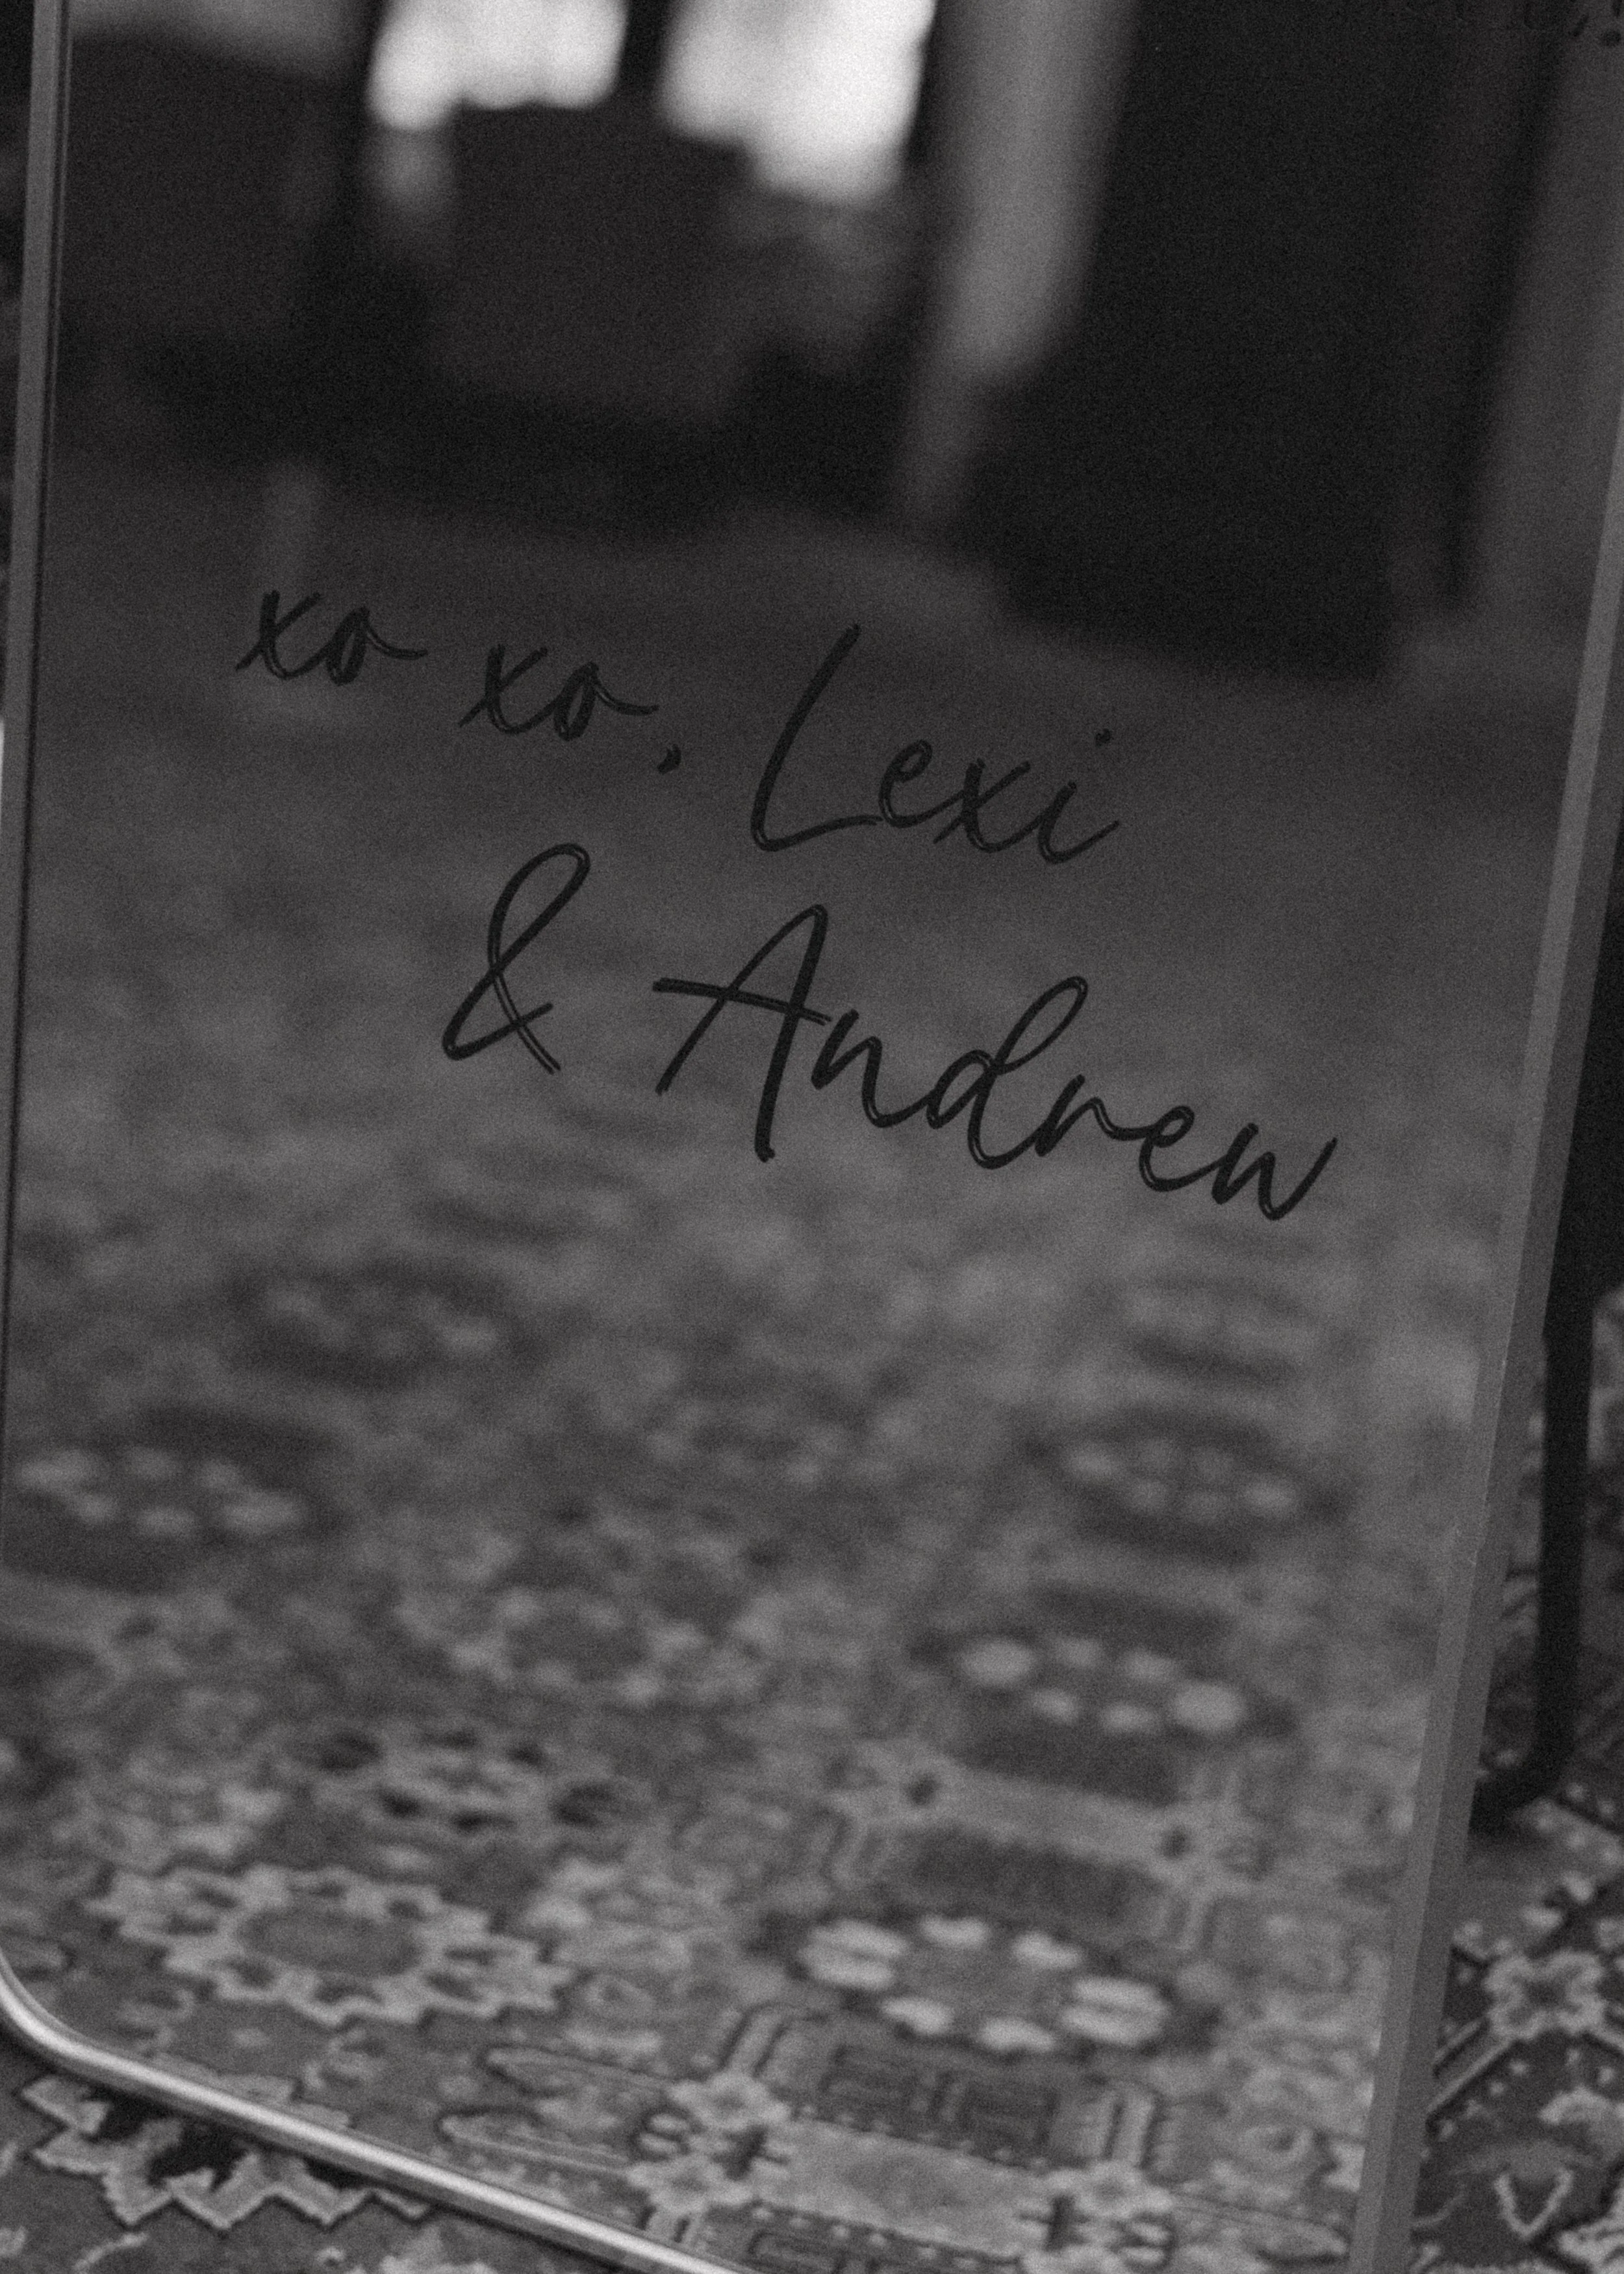 xo xo, Lexi
& Andrew